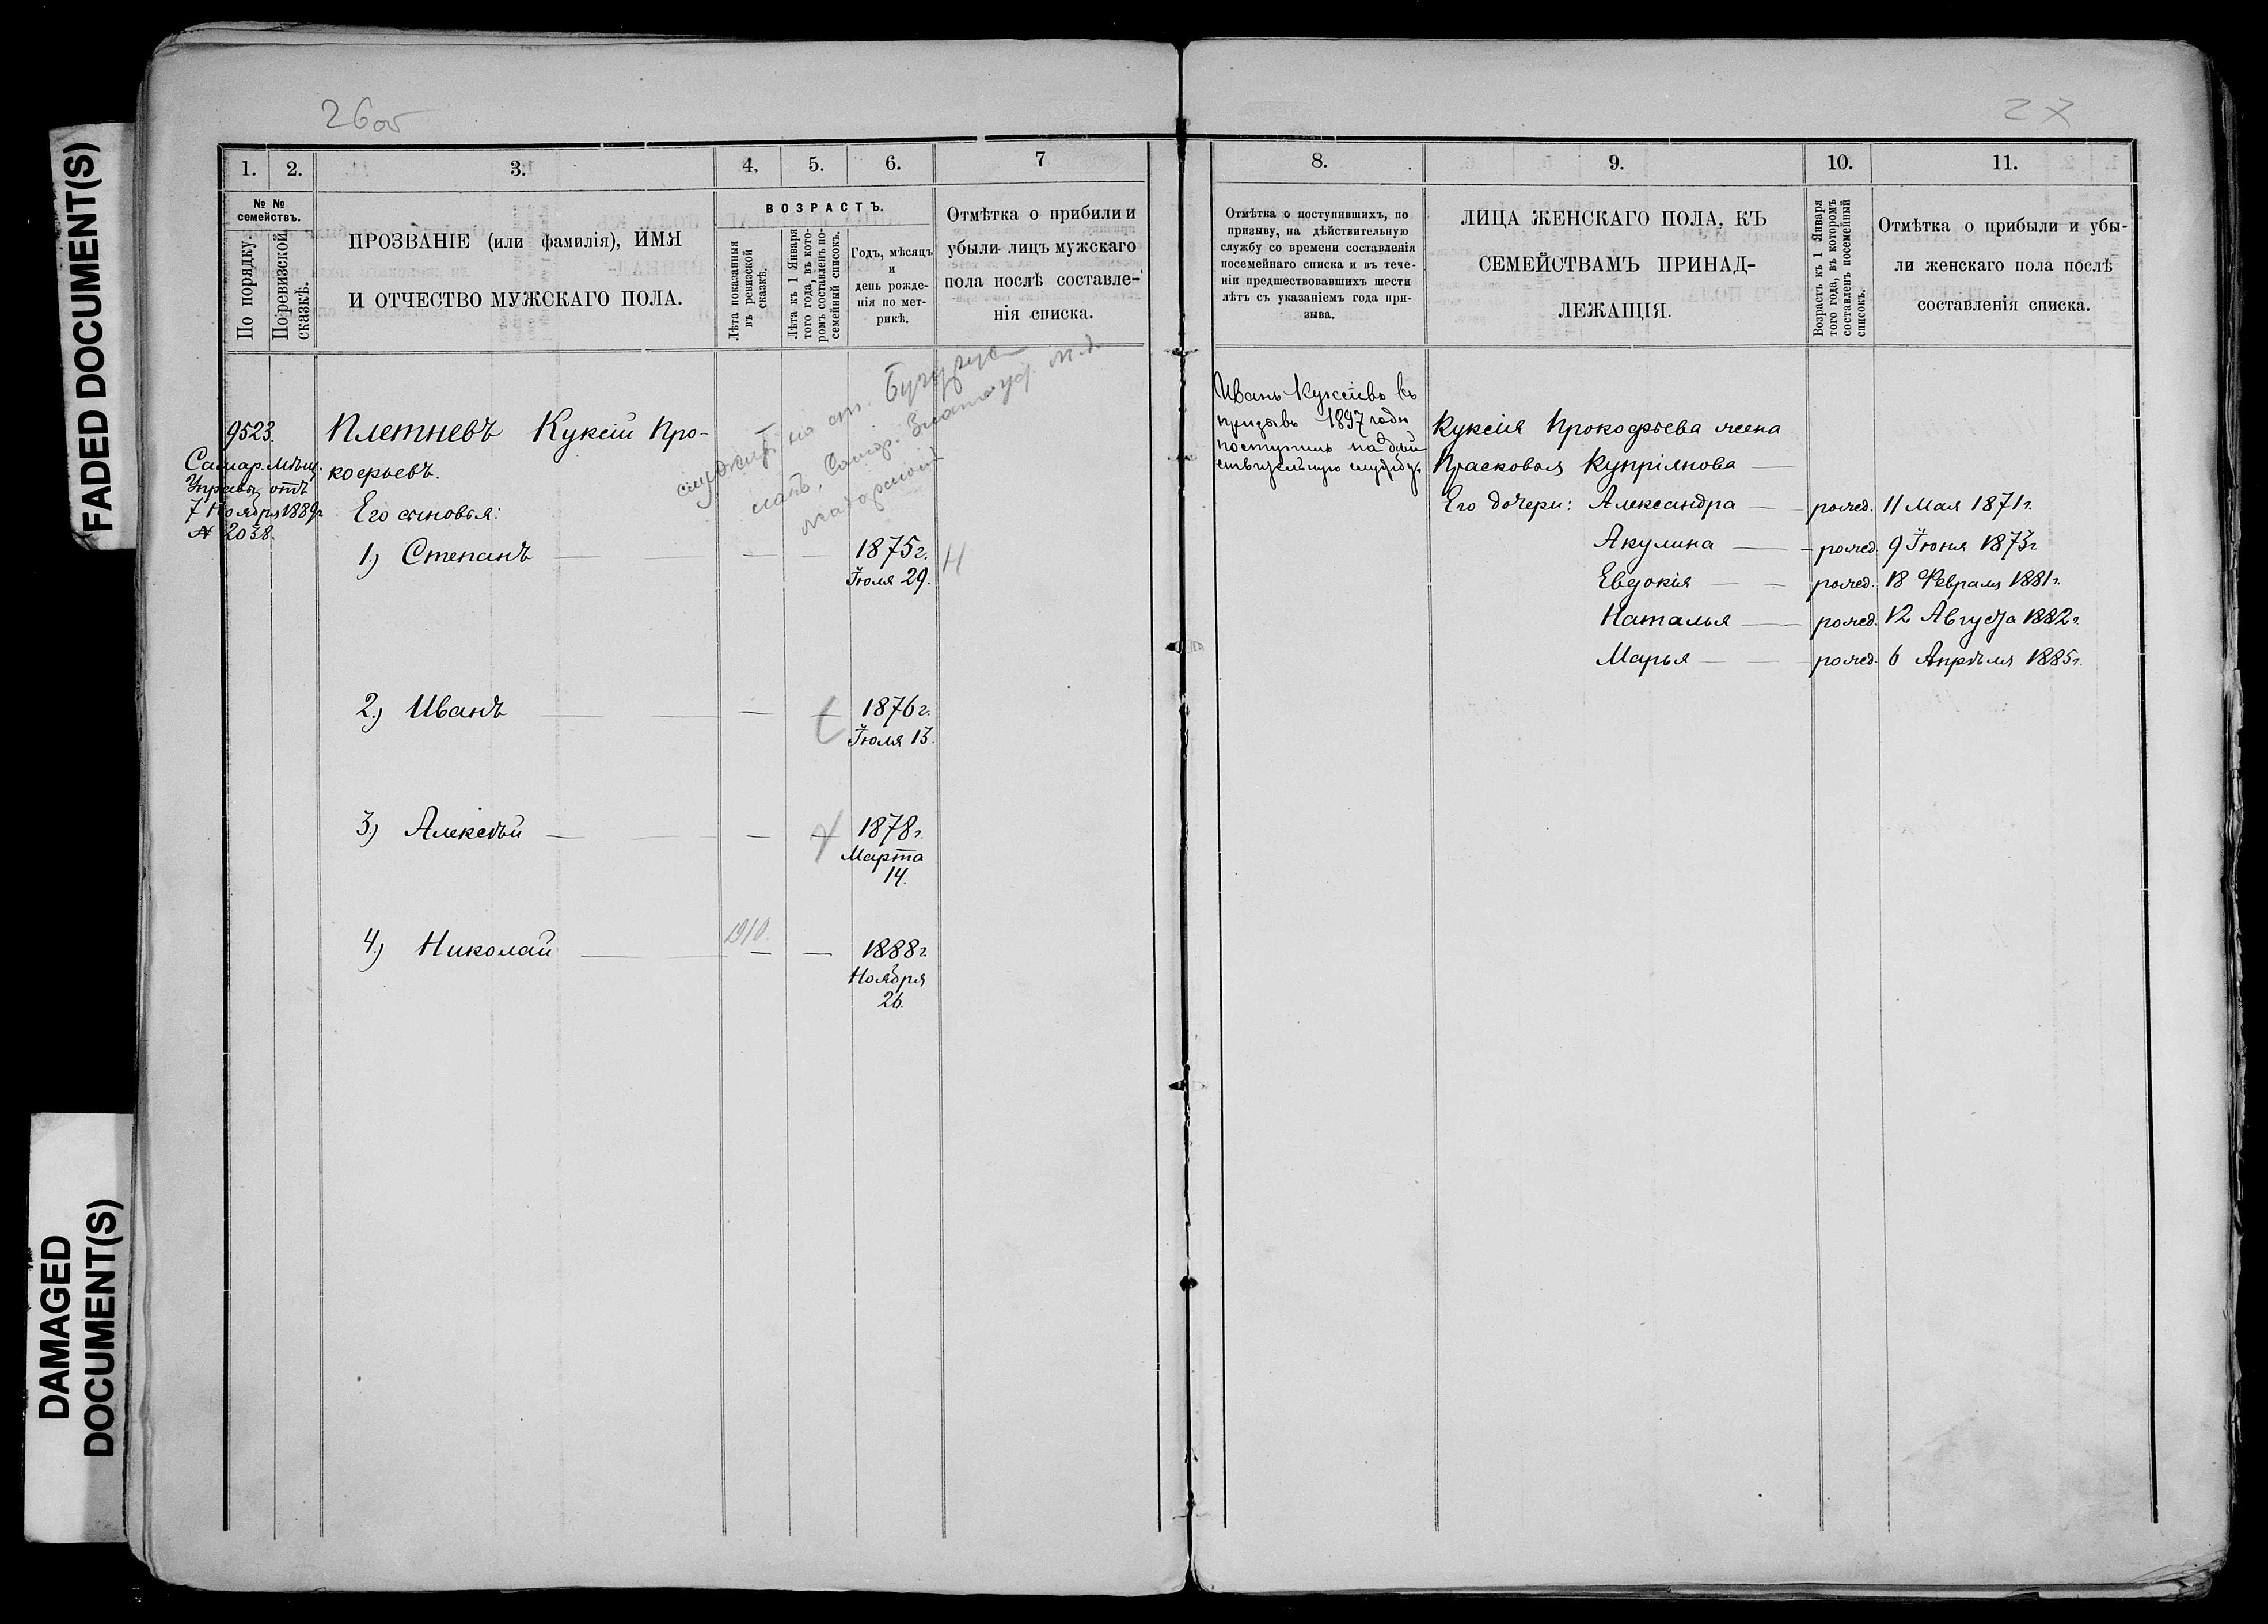 FADED DOCUMENT(S)
DAMAGED
DOCUMENT(S)
26об
1.
2.
3.
4.
5.
6.
7
№ №
семействъ.
По порядку.
По ревизской
сказкѣ.
ПРОЗВАНІЕ (или фамилія), ИМЯ
И ОТЧЕСТВО МУЖСКАГО ПОЛА.
ВОЗРАСТЪ.
Лѣта показанныя
въ ревизской
сказкѣ.
Лѣта къ 1 Января
того года, въ кото-
ромъ составленъ по-
семейный списокъ.
Годъ, мѣсяцъ
и
день рожде-
нія по мет-
рикѣ.
Отмѣтка о прибыли и
убыли лицъ мужскаго
пола послѣ составле-
нія списка.
служитъ на ст. Бугурус
ланъ, Самар. Златоуф. ж. д.
9523.
Самар. Мѣщ.
Управы отъ
7 Ноября 1889г.
№ 2038.
Плетневъ Куксій Про-
кофьевъ.
Его сыновья:
1) Степанъ — — — 1875г.
Іюля 29.
Н
2) Иванъ — — 1876г.
Іюля 13.
3) Алексѣй — — 1878г.
Марта
14.
1910.
4) Николай — — — 1888г.
Ноября
26.
27
8.
9.
10.
11.
Отмѣтка о поступившихъ, по
призыву, на дѣйствительную
службу со времени составленія
посемейнаго списка и въ тече-
ніи предшествовавшихъ шести
лѣтъ съ указаніемъ года при-
зыва.
ЛИЦА ЖЕНСКАГО ПОЛА, КЪ
СЕМЕЙСТВАМЪ ПРИНАД-
ЛЕЖАЩІЯ.
Возрастъ къ 1 Января
того года, въ которомъ
составленъ посемейный
списокъ.
Отмѣтка о прибыли и убы-
ли женскаго пола послѣ
составленія списка.
Иванъ Куксіевъ въ
призывъ 1897 года
поступилъ на дѣй
ствительную службу.
Куксія Прокофьева жена
Прасковья Купріянова —
Его дочери: Александра — рожд. 11 Мая 1871г.
Акулина — рожд. 9 Іюня 1873г.
Евдокія — рожд. 18 Февраля 1881г.
Наталья — рожд. 12 Августа 1882г.
Марья — рожд. 6 Апрѣля 1885г.